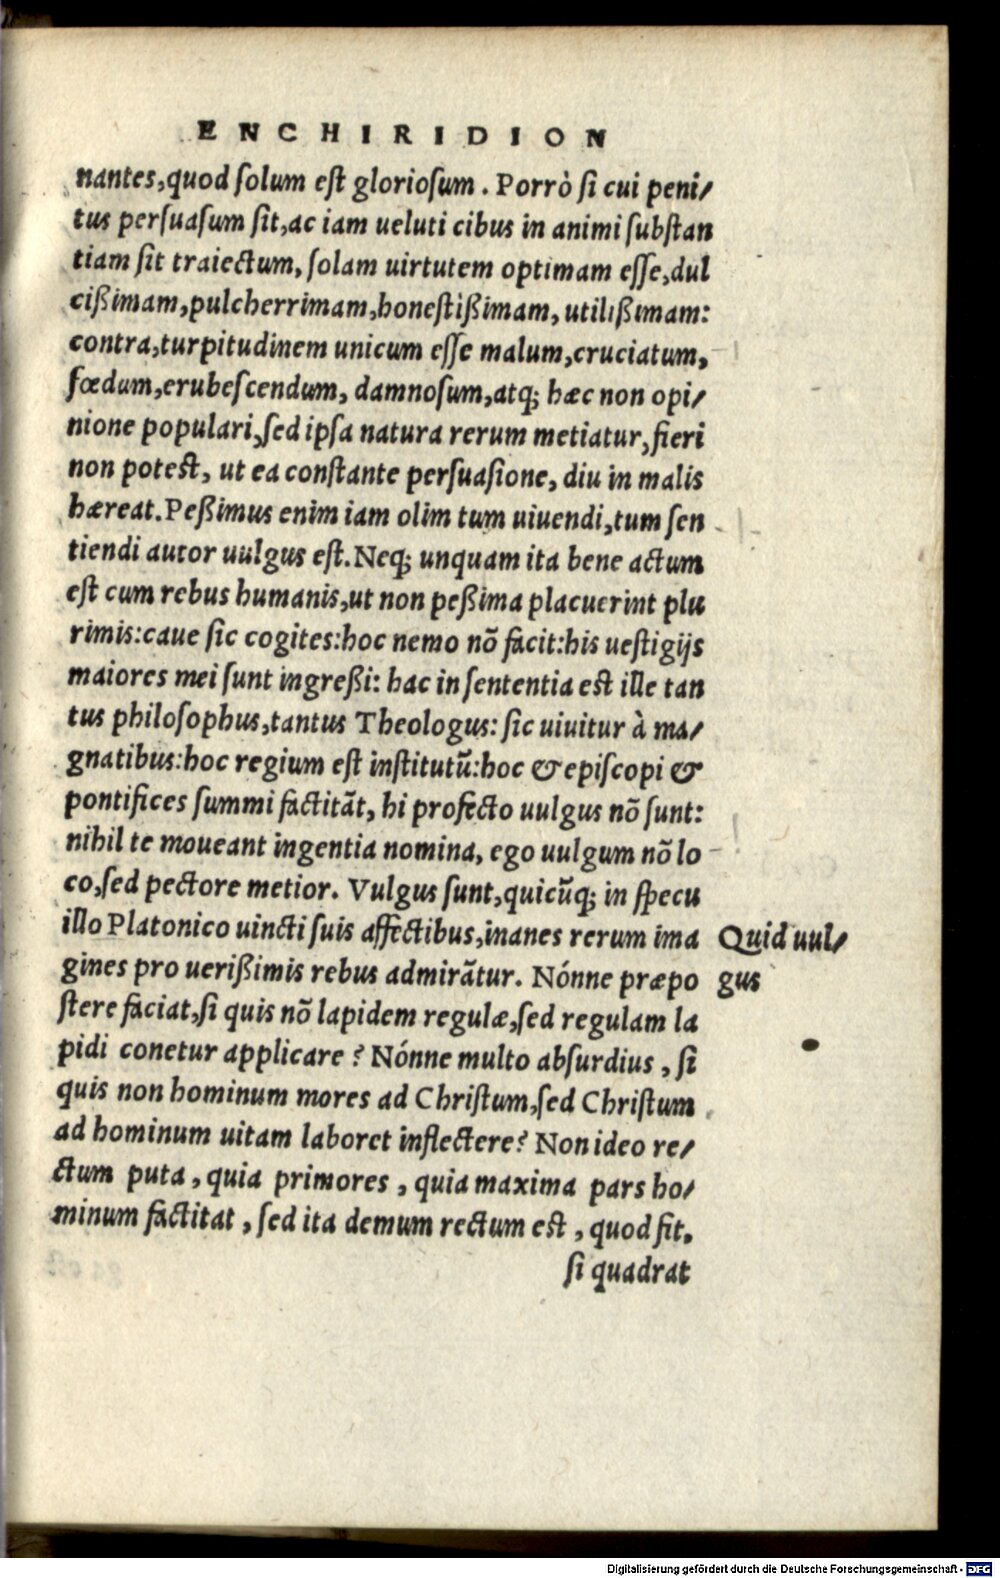 ENCHIRIDION
nantes,quod ſolum eſt glorioſum . Porrò ſi cui peni/
tus perſuaſum ſit,ac iam ueluti cibus in animi ſubſtan
tiam ſit traiectum, ſolam uirtutem optimam eſſe,dul
cißimam,pulcherrimam,honeſtißimam, utilißimam:
contra,turpitudinem unicum eſſe malum,cruciatum,
fœdum,erubeſcendum, damnoſum,atq; hæc non opi/
nione populari,ſed ipſa natura rerum metiatur,fieri
non poteſt, ut ea conſtante perſuaſione, diu in malis
hæreat.Peßimus enim iam olim tum uiuendi,tum ſen
tiendi autor uulgus eſt.Neq; unquam ita bene actum
eſt cum rebus humanis,ut non peßima placuerint plu
rimis:caue ſic cogites:hoc nemo nõ facit:his ueſtigijs
maiores mei ſunt ingreßi: hac in ſententia eſt ille tan
tus philoſophus,tantus Theologus: ſic uiuitur à ma/
gnatibus:hoc regium eſt inſtitutũ:hoc & epiſcopi &
pontifices ſummi factitãt, hi profecto uulgus nõ ſunt:
nihil te moueant ingentia nomina, ego uulgum nõ lo
co,ſed pectore metior. Vulgus ſunt,quicũq; in ſpecu
illo Platonico uincti ſuis affectibus,inanes rerum ima
gines pro uerißimis rebus admirãtur. Nónne præpo
ſtere faciat,ſi quis nõ lapidem regulæ,ſed regulam la
pidi conetur applicare ? Nónne multo abſurdius , ſi
quis non hominum mores ad Chriſtum,ſed Chriſtum
ad hominum uitam laboret inflectere? Non ideo re/
ctum puta , quia primores , quia maxima pars ho/
minum factitat , ſed ita demum rectum eſt , quod fit,
ſi quadrat
Quid uul/
gus
Digitalisierung gefördert durch die Deutsche Forschungsgemeinschaft - DFG